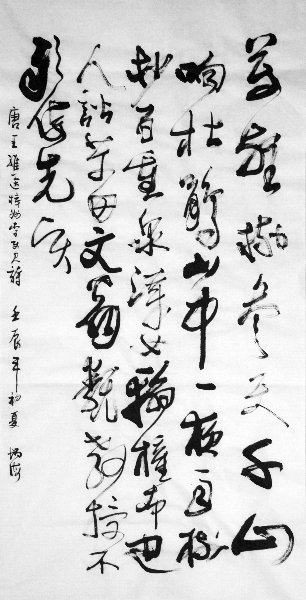 萬壑樹參天千山
响杜鵑山中一夜雨樹
杪百重泉漢女輸橦布巴
人訟芋田文翁翻教授不
敢倚先賢
唐王維送梓州李使君詩 壬辰年初夏